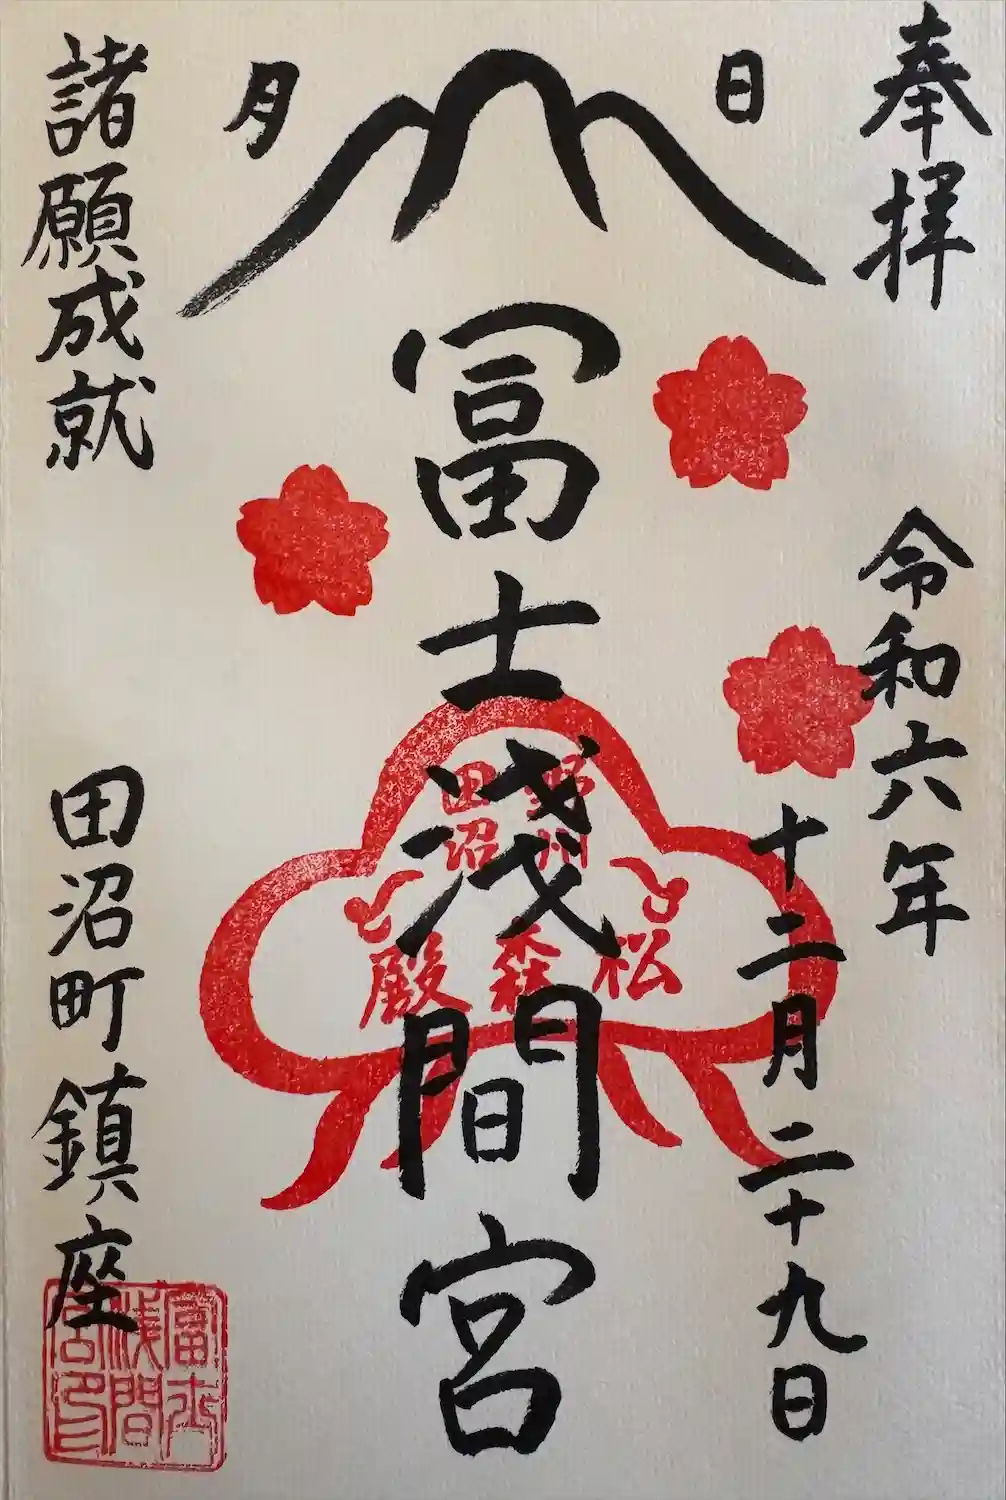 奉拝
令和六年
十二月二十九日
日
月
冨士浅間宮
野州
田沼
松森殿
諸願成就
田沼町鎮座
冨士
浅間
宮印